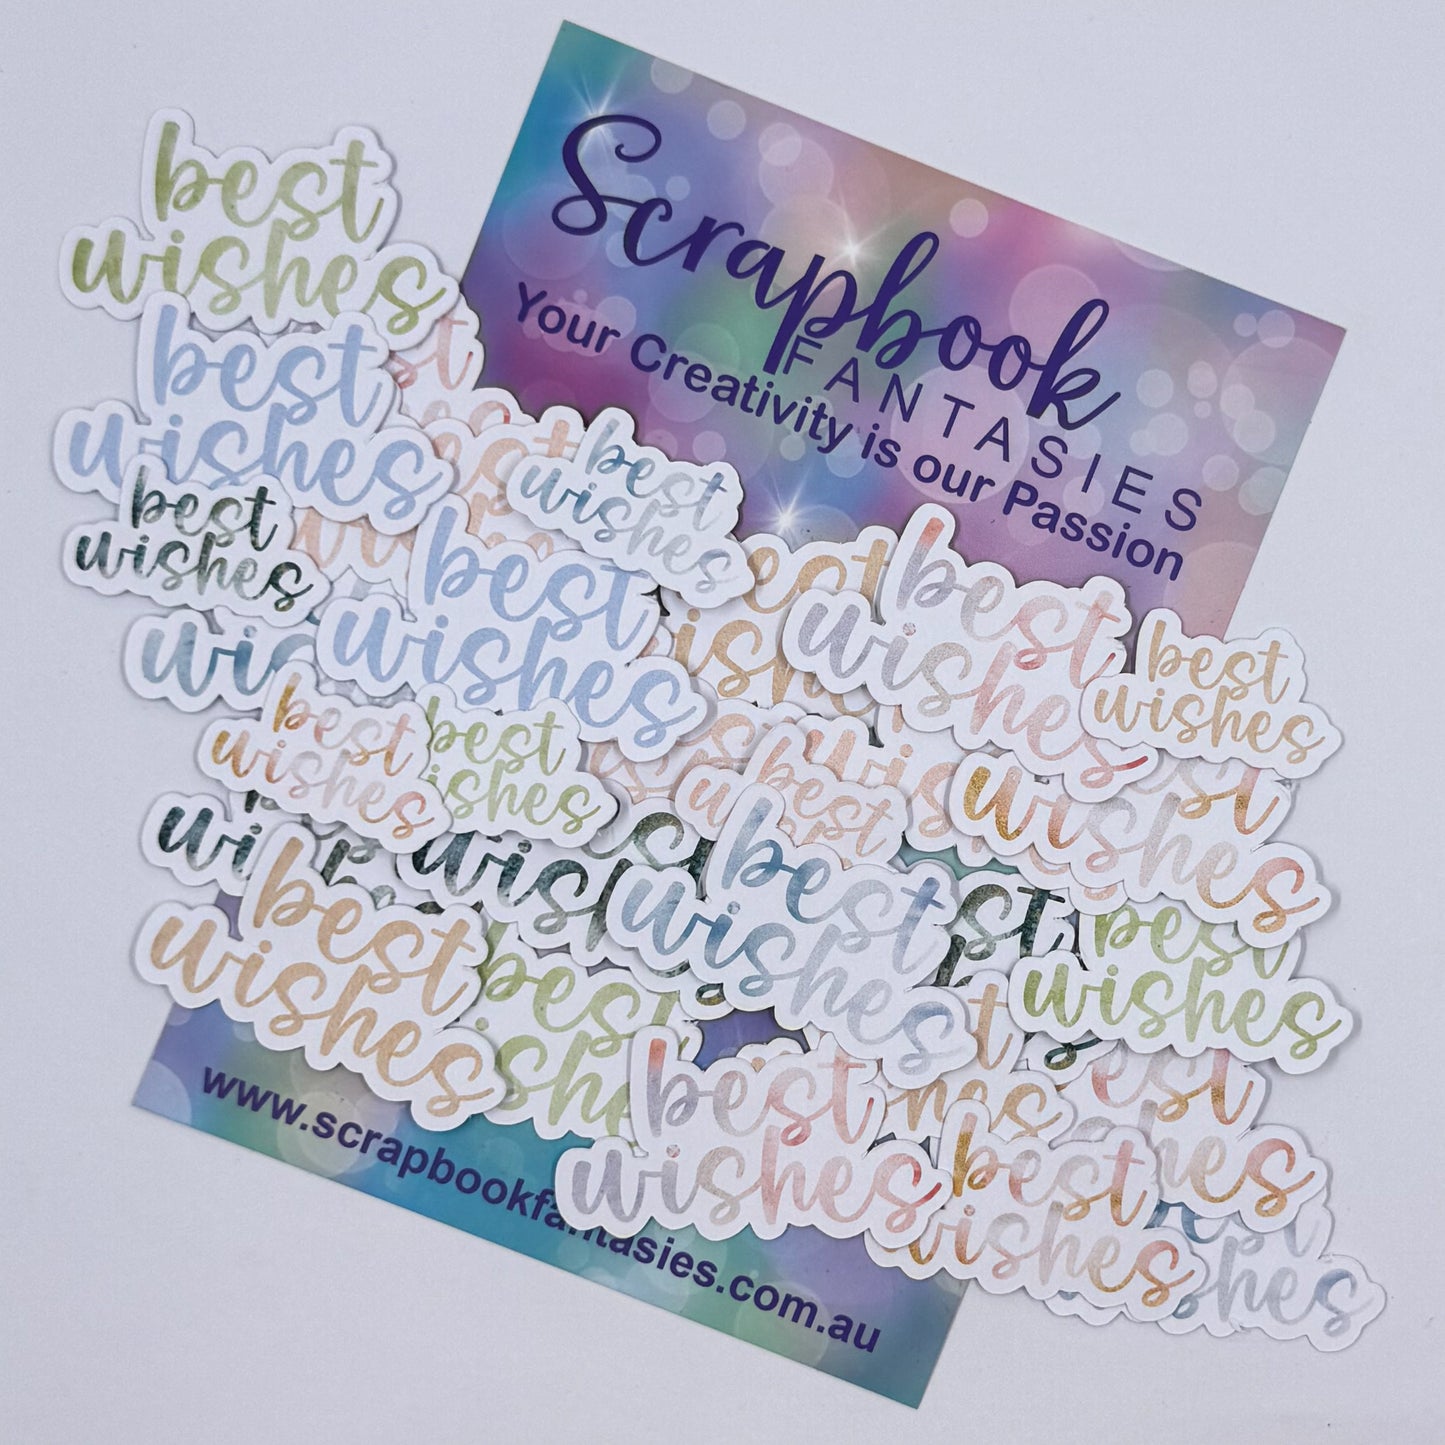 Scrapbook
FANTASIES
Your Creativity is our Passion
best
wishes
best
wishes
best
wishes
best
wishes
best
wishes
best
wishes
best
wishes
best
wishes
best
wishes
best
wishes
best
wishes
best
wishes
best
wishes
best
wishes
best
wishes
best
wishes
www.scrapbookfantasies.com.au